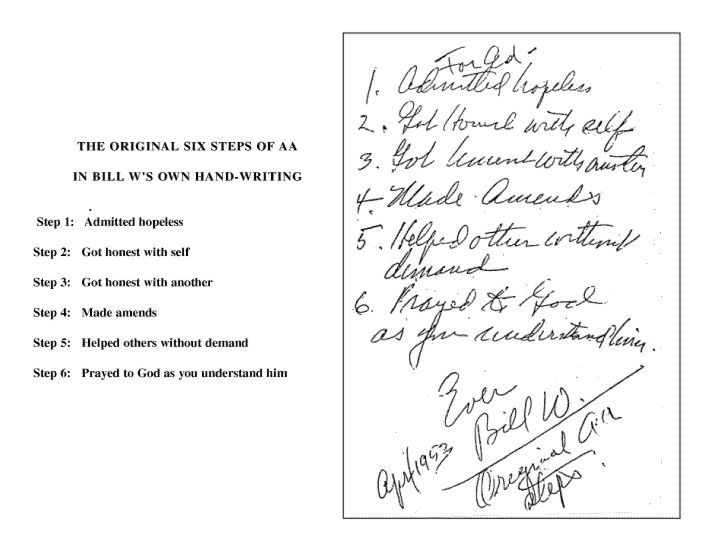 THE ORIGINAL SIX STEPS OF AA
IN BILL W'S OWN HAND-WRITING
Step 1: Admitted hopeless
Step 2: Got honest with self
Step 3: Got honest with another
Step 4: Made amends
Step 5: Helped others without demand
Step 6: Prayed to God as you understand him
For Ed-
1. Admitted hopeless
2. Got honest with self
3. Got honest with another
4. Made Amends
5. Helped other without
demand
6. Prayed to God
as you understand him.
Ever
Bill W.
April 1953
Original AA
Steps.